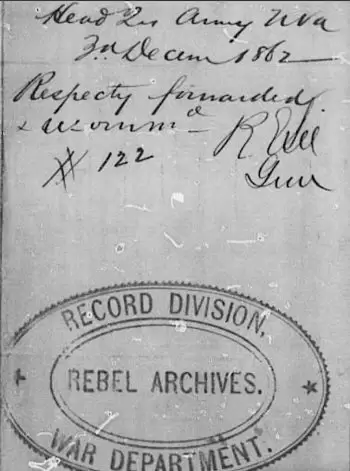 Head Qrs Army NVa
3d Decem 1862
Respecty forwarded
& recommd
R E Lee
Genl
# 122
RECORD DIVISION,
REBEL ARCHIVES.
WAR DEPARTMENT.